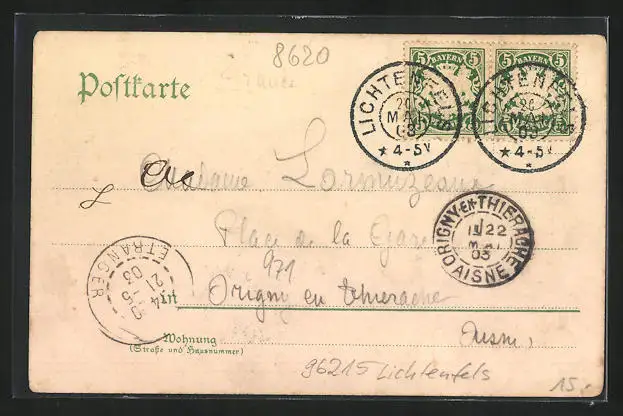 8620
Postkarte
5 BAYERN 5 5 BAYERN 5
LICHTENFELS
20
MAI
03
4-5V
LICHTENFELS
20
MAI
03
4-5V
Madame
Place de la Gare
ORIGNY-EN-THIERACHE
22
MAI
03
AISNE
ETRANGER
21-5
03
971
in Origny en Thierache
Aisne
Wohnung
(Straße und Hausnummer)
96215 Lichtenfels
15.-